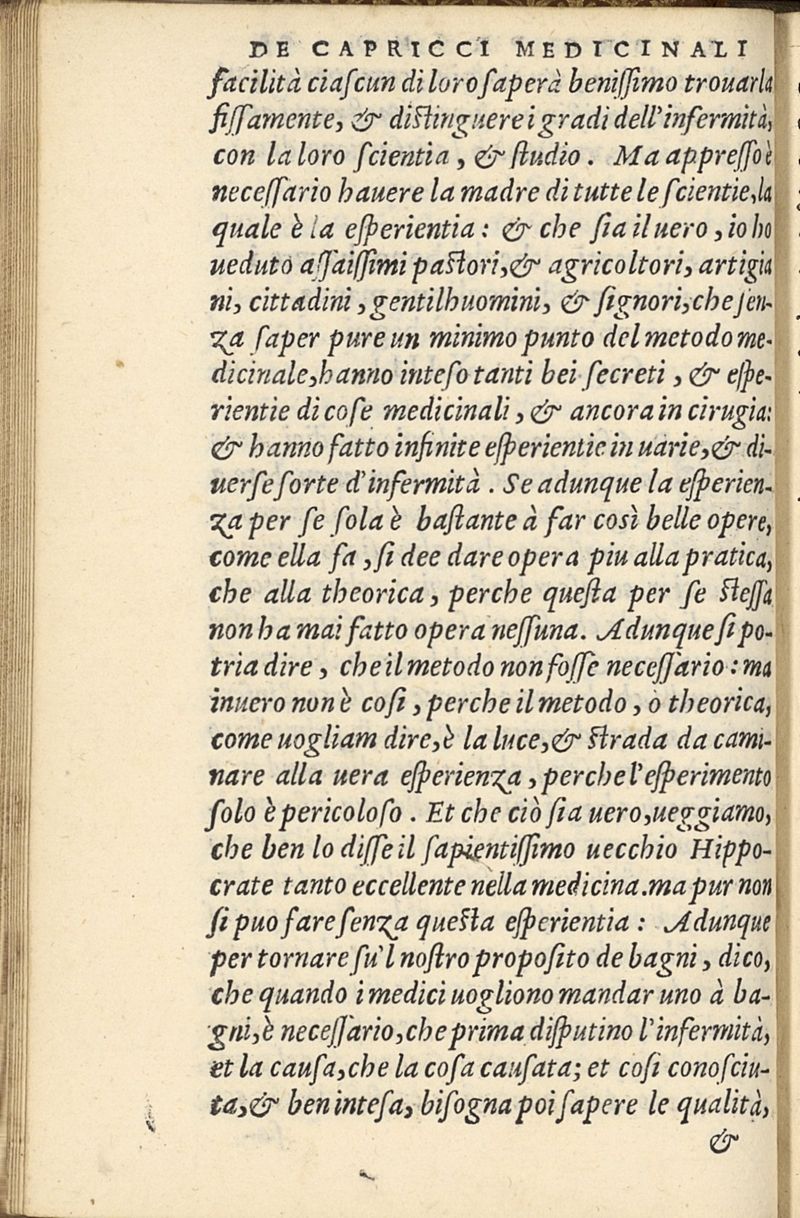 DE CAPRICCI MEDICINALI
facilità ciaſcun di loro ſaperà beniſſimo trouarla
fiſſamente, & diſtinguere i gradi dell'infermità,
con la loro ſcientia, & ſtudio. Ma appreſſo è
neceſſario hauere la madre di tutte le ſcientie, la
quale è la eſperientia: & che ſia il uero, io ho
ueduto aſſaiſſimi paſtori, & agricoltori, artigia
ni, cittadini, gentilhuomini, & ſignori, che ſen-
za ſaper pure un minimo punto del metodo me-
dicinale, hanno inteſo tanti bei ſecreti, & eſpe-
rientie di coſe medicinali, & ancora in cirugia:
& hanno fatto infinite eſperientie in uarie, & di-
uerſe ſorte d'infermità. Se adunque la eſperien-
za per ſe ſola è baſtante à far così belle opere,
come ella fa, ſi dee dare opera piu alla pratica,
che alla theorica, perche queſta per ſe ſteſſa
non ha mai fatto opera neſſuna. Adunque ſi po-
tria dire, che il metodo non foſſe neceſſario: ma
inuero non è coſi, perche il metodo, ò theorica,
come uogliam dire, è la luce, & ſtrada da cami-
nare alla uera eſperienza, perche l'eſperimento
ſolo è pericoloſo. Et che ciò ſia uero, ueggiamo,
che ben lo diſſe il ſapientiſſimo uecchio Hippo-
crate tanto eccellente nella medicina. ma pur non
ſi puo fare ſenza queſta eſperientia: Adunque
per tornare ſu'l noſtro propoſito de bagni, dico,
che quando i medici uogliono mandar uno à ba-
gni, è neceſſario, che prima diſputino l'infermità,
et la cauſa, che la coſa cauſata; et coſi conoſciu-
ta, & ben inteſa, biſogna poi ſapere le qualità,
&